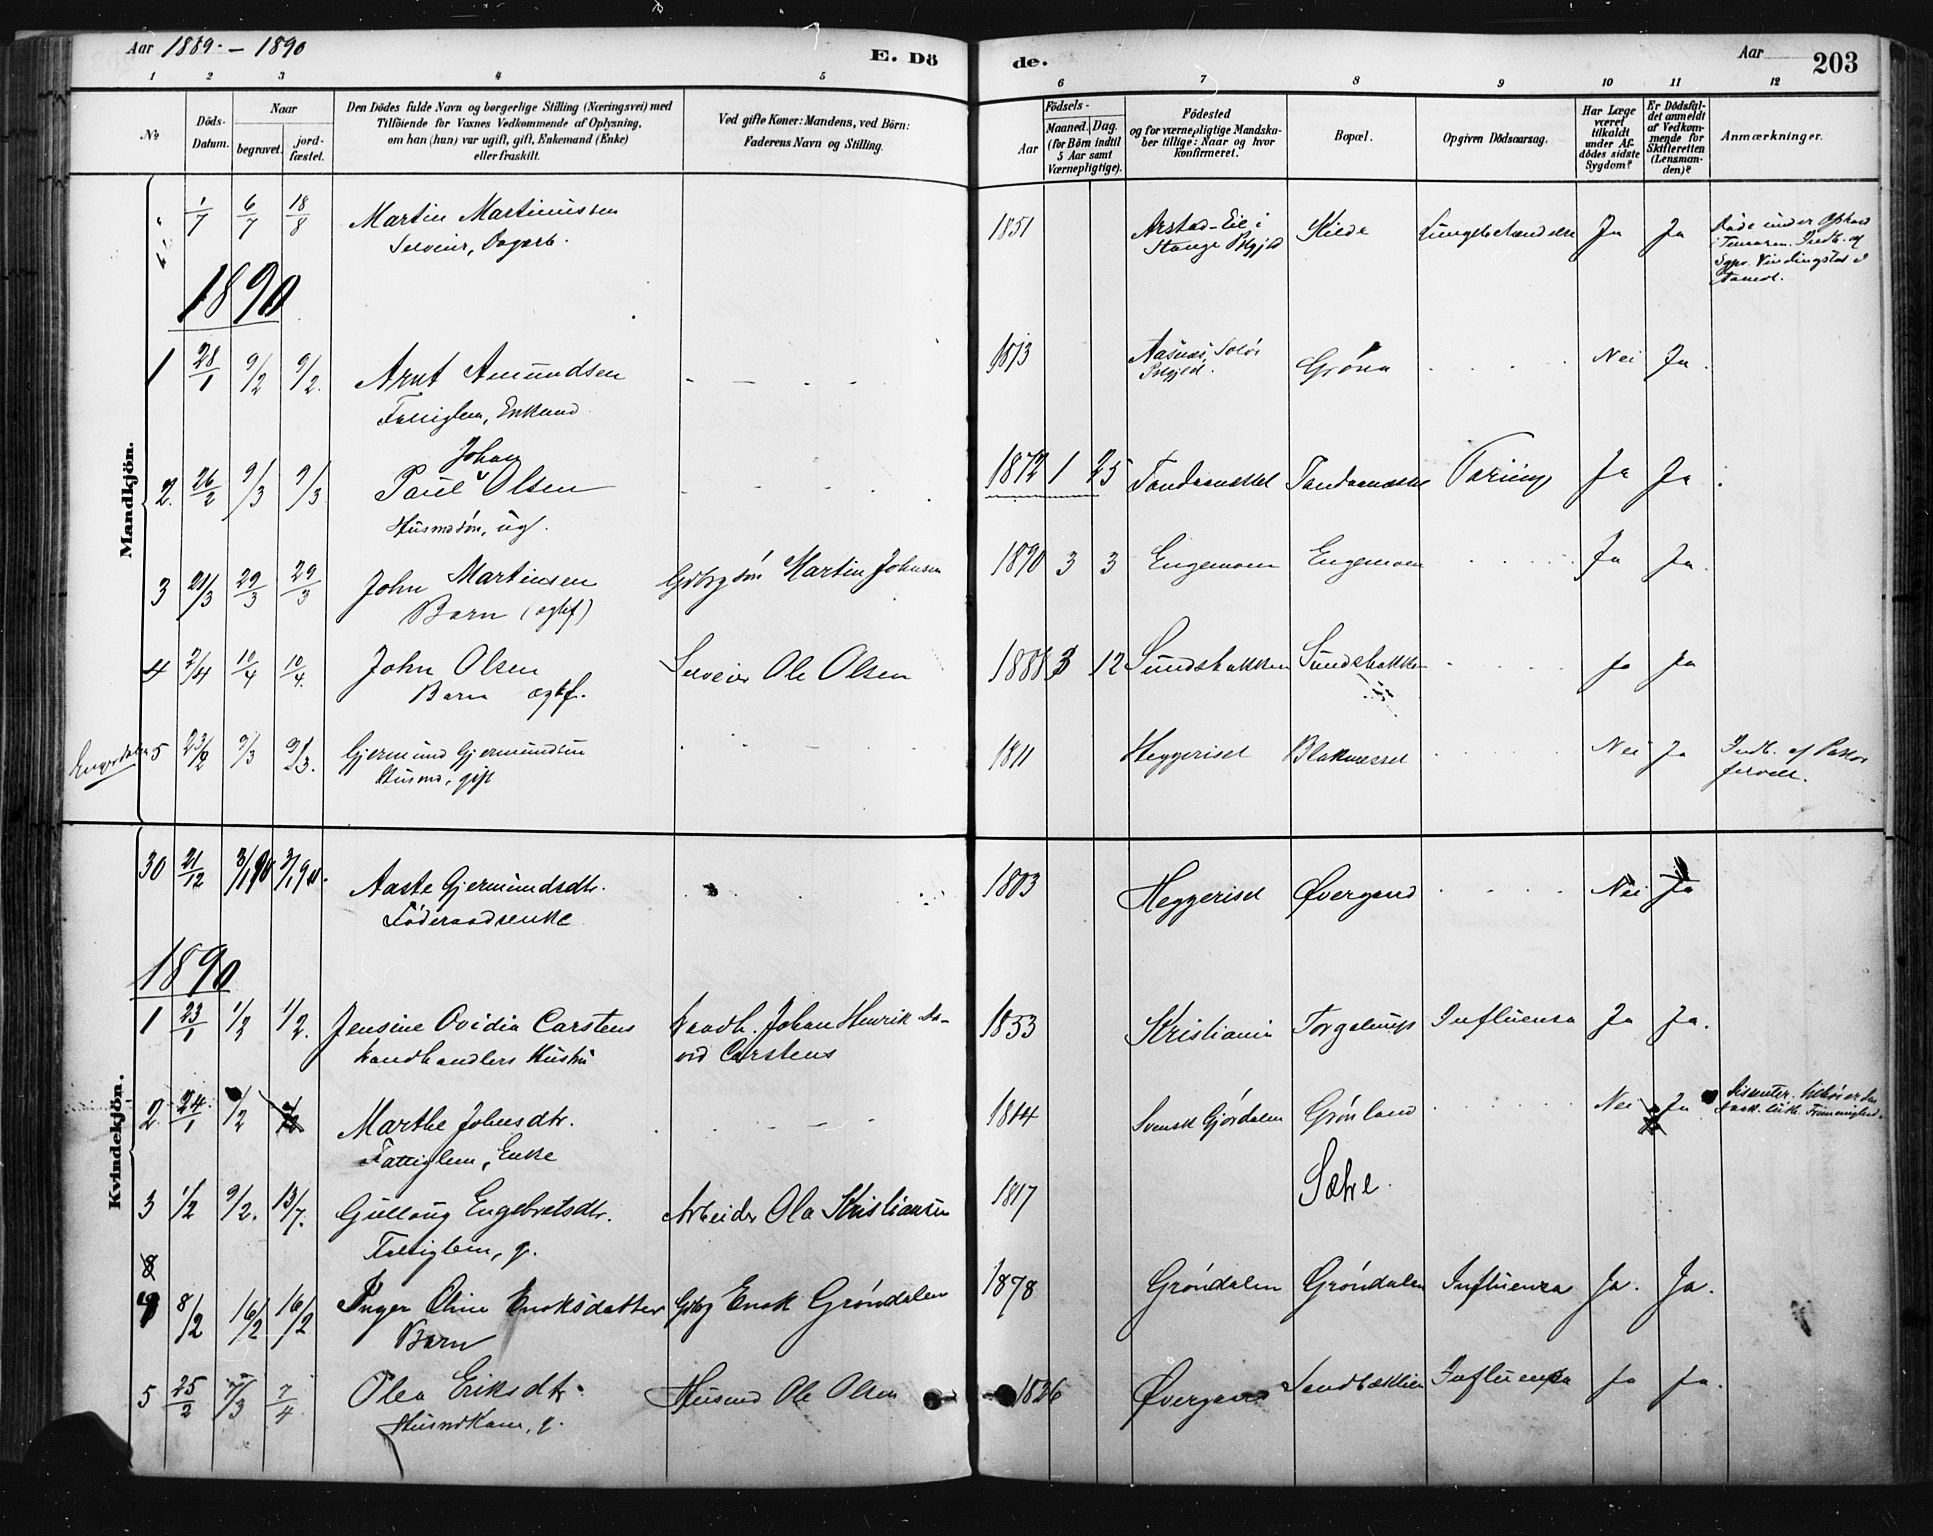 Aar 1889 - 1890
E. Dö
de.
Aar
203
1 2 3 4 5
6 7 8 9 10 11 12
No
Döds-Datum.
Naar
begravet.
jord-fæstet.
Den Dödes fulde Navn og borgerlige Stilling (Næringsvei) med
Tilföiende for Voxnes Vedkommende af Oplysning,
om han (hun) var ugift, gift, Enkemand (Enke)
eller fraskilt.
Ved gifte Koner: Mandens, ved Börn:
Faderens Navn og Stilling.
Födsels-
Aar
Maaned. Dag.
(for Börn indtil
5 Aar samt
Værnepligtige).
Födested
og for værnepligtige Mandska-
ber tillige: Naar og hvor
konfirmeret.
Bopæl.
Opgiven Dödsaarsag.
Har Læge
været
tilkaldt
under Af-
dödes sidste
Sygdom?
Er Dödsfal-
det anmeldt
af Vedkom-
mende for
Skifteretten
(Lensman-
den)?
Anmærkninger.
Mandkjön.
1/7 6/7 18/8 Martin Martinussen 1851 Stange Kilde Lungebetændelse Ja Ja
Selveier, Dagarb.
1890
1 28/1 9/2 9/2. Arnt Amundsen 1813 Aasnæs, Solör Gröna Nei Ja.
Fattiglem, Enkemd. Prgjeld.
Johan
2. 26/2 9/3 9/3 Paul Olsen 1872 1 25 Ja Ja
Husmdsön, ug.
3 21/3 29/3 29/3 John Martinsen Martin Johnsen 1890 3 3 Engemoen Engemoen Ja Ja.
Barn (ægtf)
4 2/4 10/4 10/4. John Olsen Selveier Ole Olsen 1888 3 12 Sundsbakken Sundsbakken Ja Ja
Barn ægtf.
Engerdalen 5 23/2 9/3 9/3. Gjermund Gjermundsen 1811 Heggeriset Blakmesset Nei Ja Indb. af Pastor
Husmd, gift
Kvindekjön.
30 21/12 3/1 90 3/1 90. Aaste Gjermundsdtr. 1803 Heggeriset Övergaard Nei Ja
Föderaadsenke
1890
1 23/1 1/2 1/2. Jensine Ovidia Carstens Landh. Johan Henrik Da- 1853 Kristiania Influensa Ja Ja.
Landhandlers Hustru vid Carstens
2. 24/1 1/2 Marthe Johnsdtr. 1814 Svensk Gjördalen Grönland Nei Ja Dissenter.
Fattiglem, Enke
3 1/2 9/2. 13/7. Gullaug Engebretsdtr. Arbeider Ola Kristiansen 1817 Sætre
Fattiglem, g.
4 8/2 16/2 16/2 Inger Oline Enoksdatter Gbbrg Enok Gröndalen 1878 Gröndalen Gröndalen Influensa Ja. Ja.
Barn
5 25/2 7/3 7/4 Olea Eriksdtr. Husmd Ole Olsen 1826 Övergaard Sandbæklien Influensa Ja Ja.
Husmdkone, g.